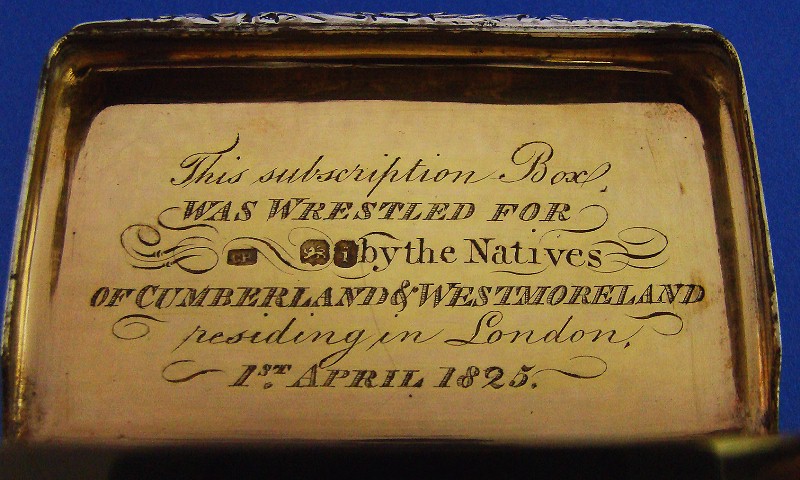 This subscription Box,
WAS WRESTLED FOR
by the Natives
OF CUMBERLAND & WESTMORELAND
residing in London,
1ST APRIL 1825.